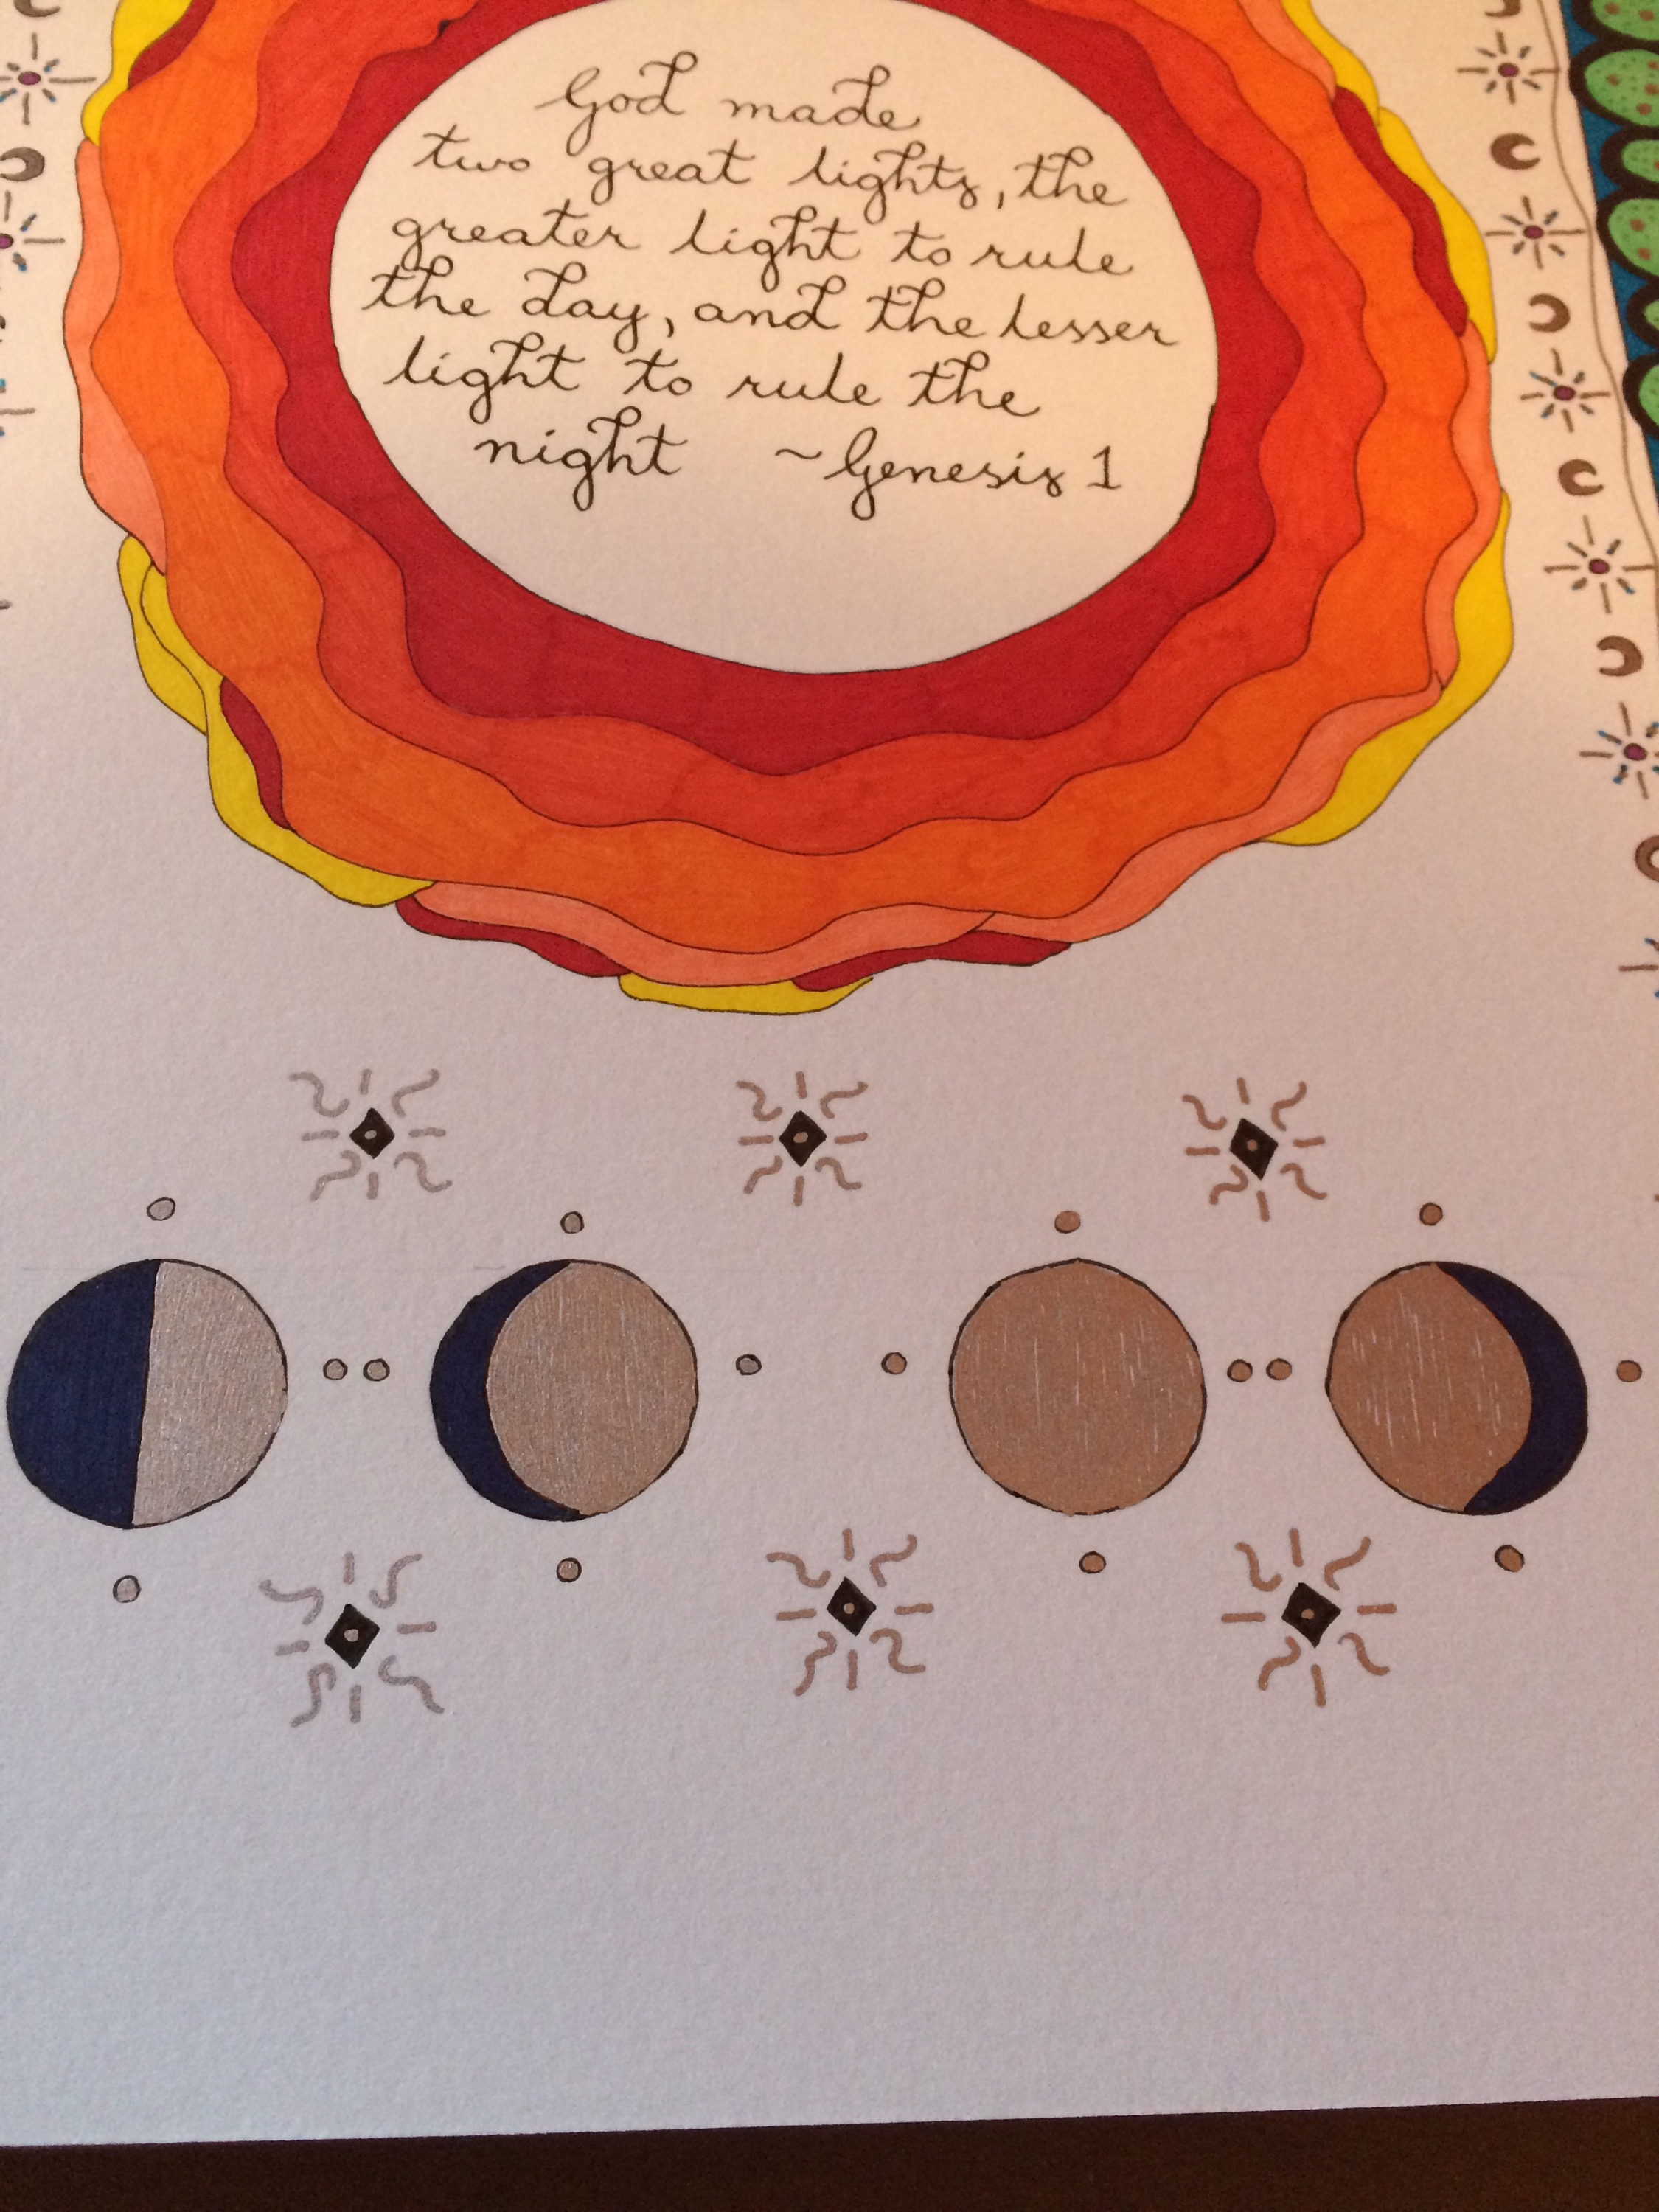 God made
two great lights, the
greater light to rule
the day, and the lesser
light to rule the
night ~Genesis 1